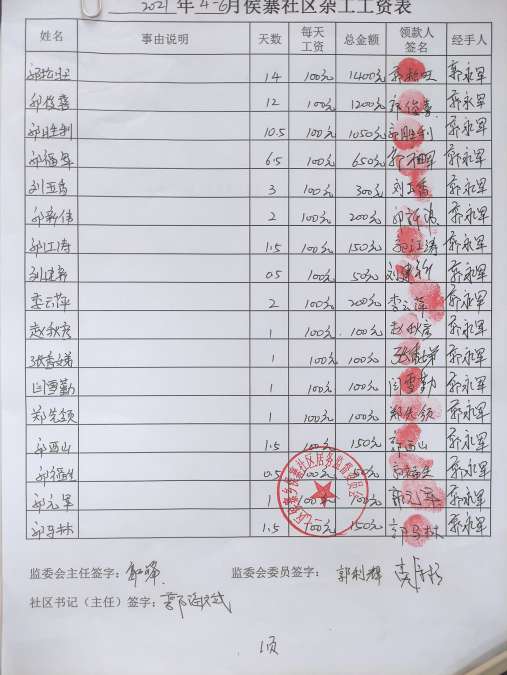 2021年4-6月侯寨社区杂工工资表
姓名 事由说明 天数 每天工资 总金额 领款人签名 经手人
14 100元 1400元 郭永军
郭俊喜 12 100元 1200元 郭俊喜 郭永军
郭胜利 10.5 100元 1050元 郭胜利 郭永军
郭福军 6.5 100元 650元 郭永军
刘玉香 3 100元 300元 刘玉香 郭永军
郭新伟 2 100元 200元 郭永军
郭江涛 1.5 100元 150元 郭江涛 郭永军
刘建新 0.5 100元 50元 刘建新 郭永军
娄云萍 2 100元 200元 娄云萍 郭永军
赵秋房 1 100元 100元 赵秋房 郭永军
张香娣 1 100元 100元 张香娣 郭永军
闫雪勤 1 100元 100元 闫雪勤 郭永军
郑先领 1 100元 100元 郑先领 郭永军
郭西山 1.5 100元 150元 郭西山 郭永军
郭福生 0.5 100元 50元 郭福生 郭永军
郭元军 1 100元 100元 郭元军 郭永军
郭马林 1.5 100元 150元 郭马林 郭永军
监委会主任签字： 监委会委员签字： 郭利辉
社区书记（主任）签字：
1页